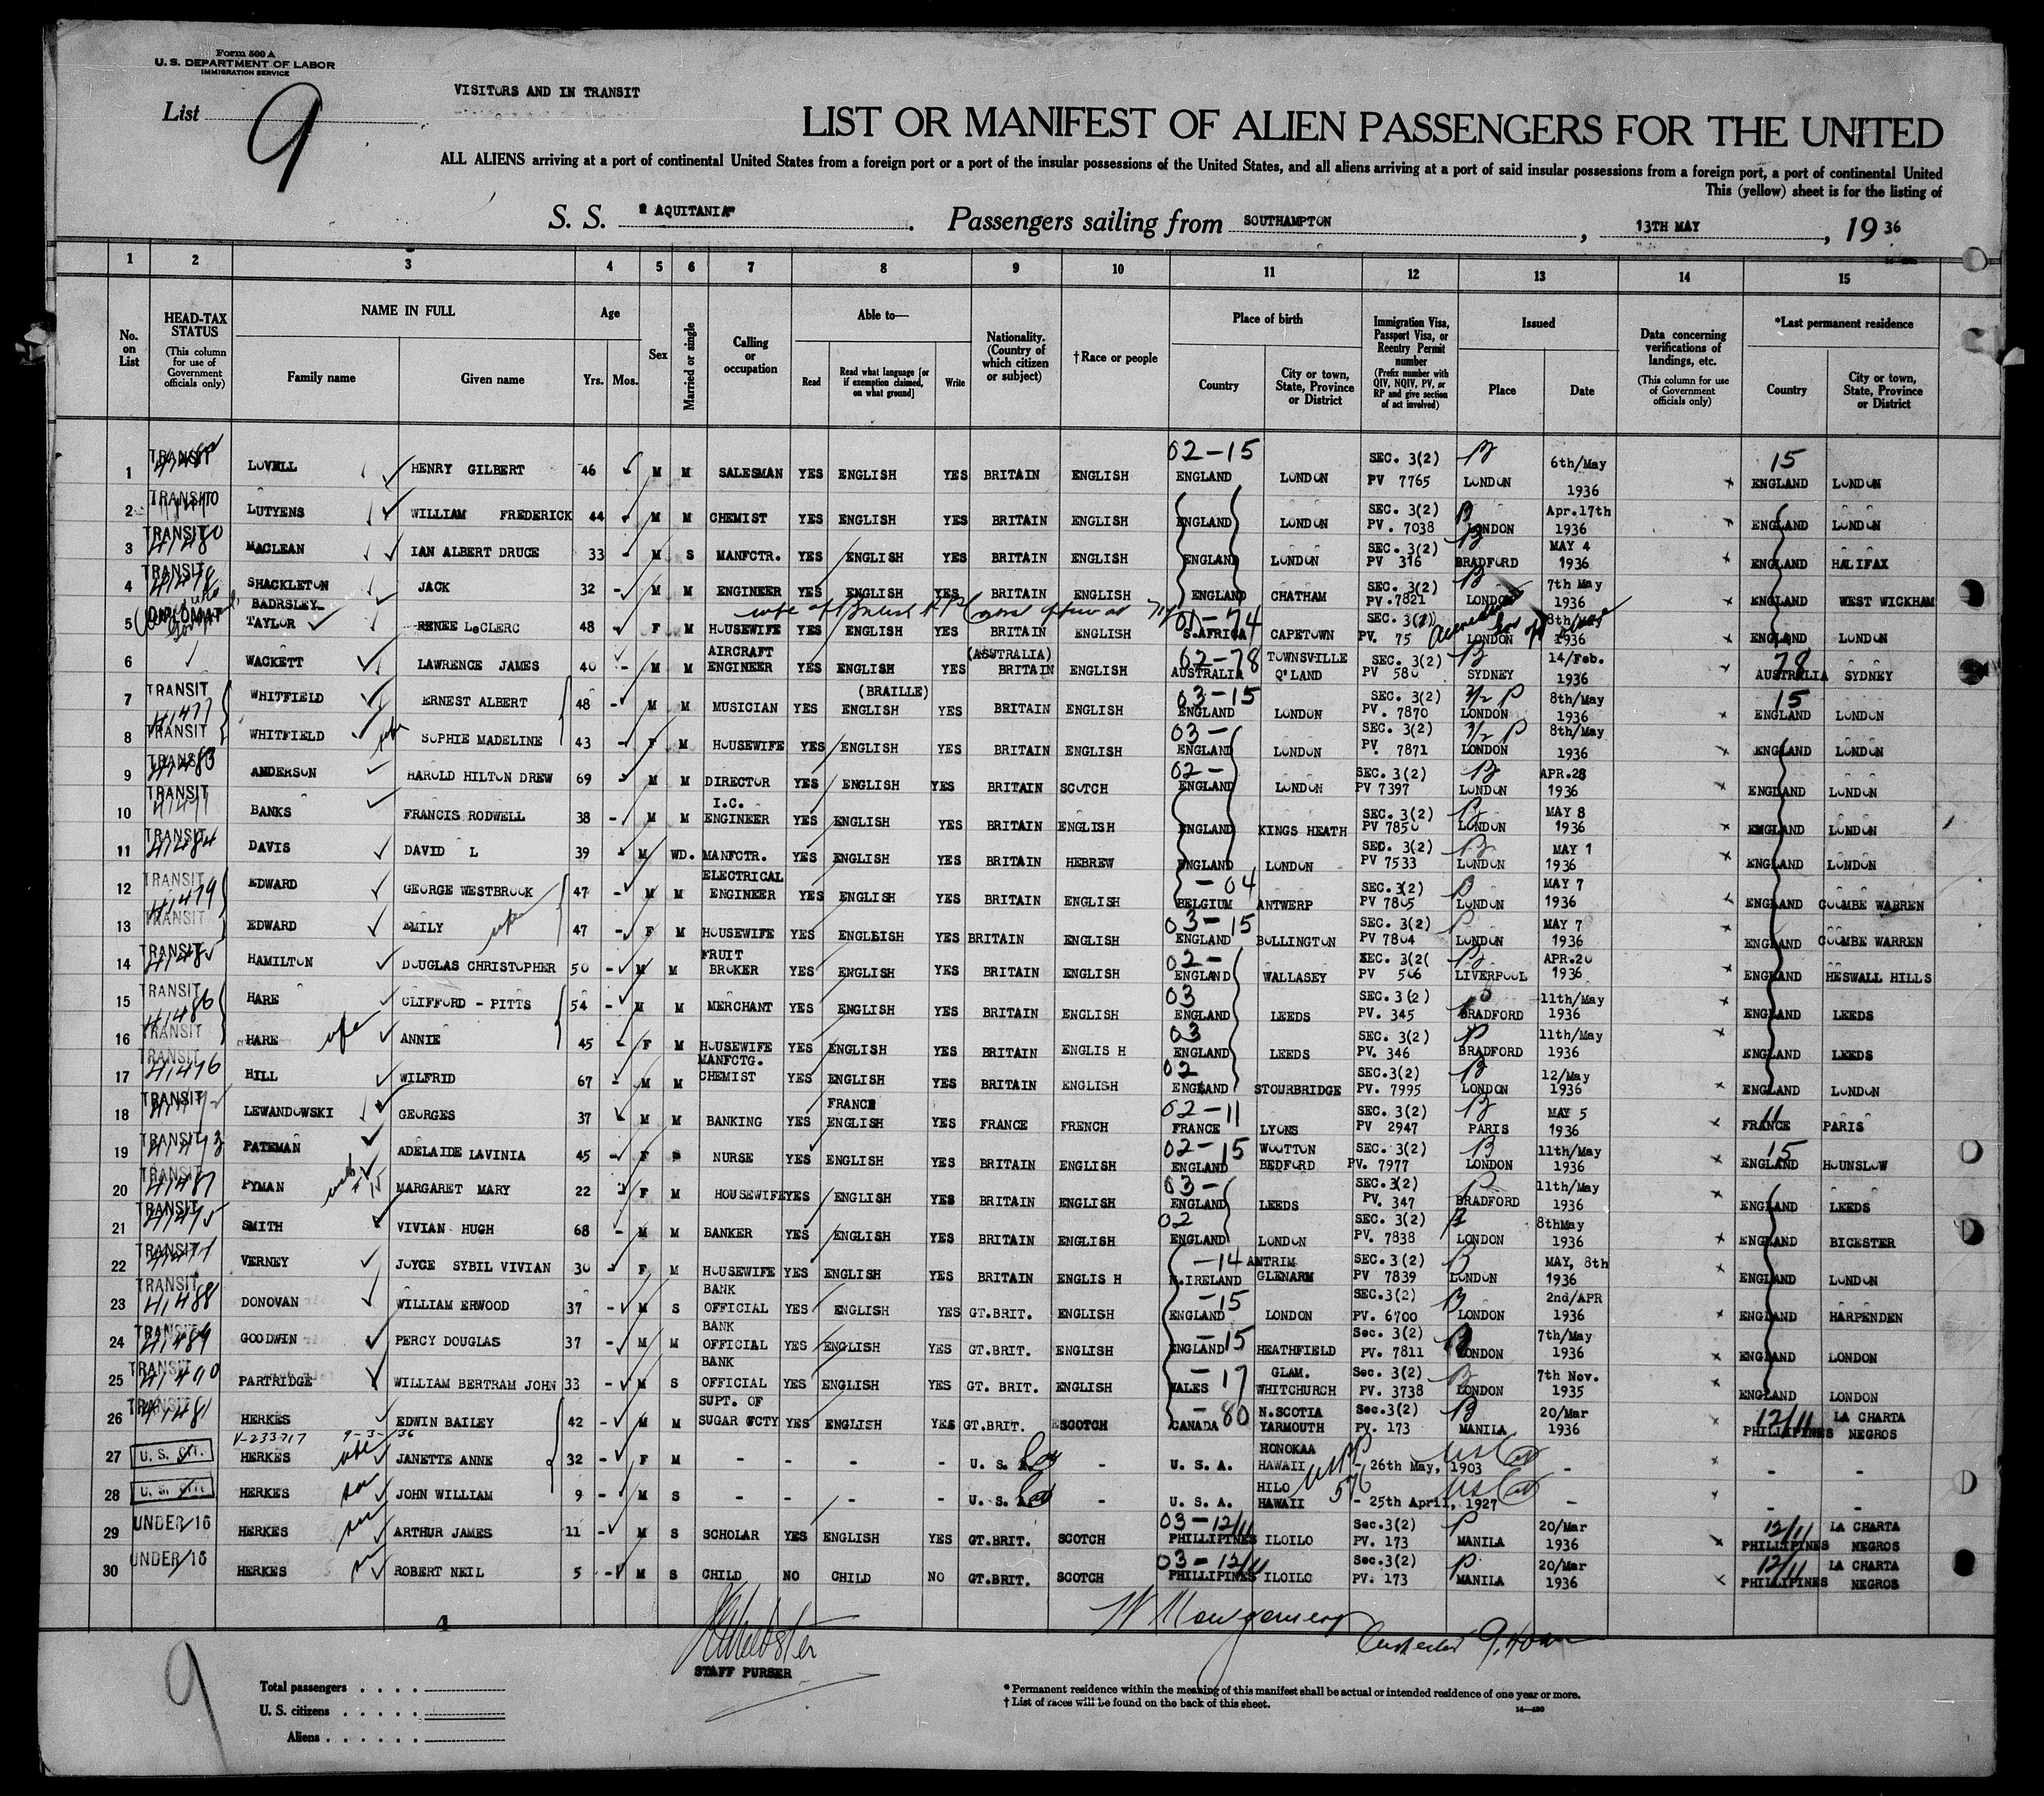 Form 500 A
U. S. DEPARTMENT OF LABOR
IMMIGRATION SERVICE
List 9
VISITORS AND IN TRANSIT
LIST OR MANIFEST OF ALIEN PASSENGERS FOR THE UNITED
ALL ALIENS arriving at a port of continental United States from a foreign port or a port of the insular possessions of the United States, and all aliens arriving at a port of said insular possessions from a foreign port, a port of continental United
This (yellow) sheet is for the listing of
S. S. "AQUITANIA". Passengers sailing from SOUTHAMPTON, 13TH MAY, 1936
1 2 3 4 5 6 7 8 9 10 11 12 13 14 15
No. on List
HEAD-TAX STATUS (This column for use of Government officials only)
NAME IN FULL
Family name
Given name
Age
Yrs. Mos.
Sex
Married or single
Calling or occupation
Able to—
Read
Read what language [or if exemption claimed, on what ground]
Write
Nationality. (Country of which citizen or subject)
†Race or people
Place of birth
Country
City or town, State, Province or District
Immigration Visa, Passport Visa, or Reentry Permit number (Prefix number with QIV, NQIV, PV, or RP and give section of act involved)
Issued
Place
Date
Data concerning verifications of landings, etc. (This column for use of Government officials only)
*Last permanent residence
Country
City or town, State, Province or District
1 TRANSIT LOVELL HENRY GILBERT 46 M M SALESMAN YES ENGLISH YES BRITAIN ENGLISH 02-15 ENGLAND LONDON SEC. 3(2) PV 7765 LONDON 6th/May 1936 15 ENGLAND LONDON
2 TRANSIT LUTYENS WILLIAM FREDERICK 44 M M CHEMIST YES ENGLISH YES BRITAIN ENGLISH ENGLAND LONDON SEC. 3(2) PV. 7038 LONDON Apr.17th 1936 ENGLAND LONDON
3 TRANSIT 41480 MACLEAN IAN ALBERT DRUCE 33 M S MANFCTR. YES ENGLISH YES BRITAIN ENGLISH ENGLAND LONDON SEC. 3(2) PV 316 BRADFORD MAY 4 1936 ENGLAND HALIFAX
4 TRANSIT 41478 SHACKLETON JACK 32 - M M ENGINEER YES ENGLISH YES BRITAIN ENGLISH ENGLAND CHATHAM SEC. 3(2) PV.7821 LONDON 7th May 1936 ENGLAND WEST WICKHAM
wife of British
5 DIPLOMAT BADRSLEY- TAYLOR RENEE LeCLERC 48 F M HOUSEWIFE YES ENGLISH YES BRITAIN ENGLISH 01-74 S.AFRICA CAPETOWN SEC. 3(1) PV. 75 LONDON 8th/May 1936 ENGLAND LONDON
6 WACKETT LAWRENCE JAMES 40 - M M AIRCRAFT ENGINEER YES ENGLISH YES (AUSTRALIA) BRITAIN ENGLISH 02-78 AUSTRALIA TOWNSVILLE Q'LAND SEC. 3(2) PV 580 SYDNEY 14/Feb. 1936 78 AUSTRALIA SYDNEY
7 TRANSIT 41477 WHITFIELD ERNEST ALBERT 48 - M M MUSICIAN YES (BRAILLE) ENGLISH YES BRITAIN ENGLISH 03-15 ENGLAND LONDON SEC. 3(2) PV. 7870 LONDON 8th/May 1936 15 ENGLAND LONDON
8 TRANSIT WHITFIELD wife SOPHIE MADELINE 43 - F M HOUSEWIFE YES ENGLISH YES BRITAIN ENGLISH 03- ENGLAND LONDON SEC. 3(2) PV. 7871 LONDON 8th/May 1936 ENGLAND LONDON
9 TRANSIT 41483 ANDERSON HAROLD HILTON DREW 69 - M M DIRECTOR YES ENGLISH YES BRITAIN SCOTCH 02- ENGLAND LONDON SEC. 3(2) PV 7397 LONDON APR.28 1936 ENGLAND LONDON
10 TRANSIT BANKS FRANCIS RODWELL 38 - M M I.C. ENGINEER YES ENGLISH YES BRITAIN ENGLISH ENGLAND KINGS HEATH SEC. 3(2) PV 7850 LONDON MAY 8 1936 ENGLAND LONDON
11 TRANSIT 41484 DAVIS DAVID L 39 - M WD. MANFCTR. YES ENGLISH YES BRITAIN HEBREW ENGLAND LONDON SEC. 3(2) PV 7533 LONDON MAY 1 1936 ENGLAND LONDON
12 TRANSIT 41479 EDWARD GEORGE WESTBROOK 47 - M M ELECTRICAL ENGINEER YES ENGLISH YES BRITAIN ENGLISH -04 BELGIUM ANTWERP SEC. 3(2) PV 7805 LONDON MAY 7 1936 ENGLAND COOMBE WARREN
13 TRANSIT EDWARD EMILY wife 47 - F M HOUSEWIFE YES ENGLEISH YES BRITAIN ENGLISH 03-15 ENGLAND BOLLINGTON SEC. 3(2) PV 7804 LONDON MAY 7 1936 ENGLAND COOMBE WARREN
14 TRANSIT 41485 HAMILTON DOUGLAS CHRISTOPHER 50 - M M FRUIT BROKER YES ENGLISH YES BRITAIN ENGLISH 02- ENGLAND WALLASEY SEC. 3(2( PV 506 LIVERPOOL APR.20 1936 ENGLAND HESWALL HILLS
15 TRANSIT 41486 HARE CLIFFORD - PITTS 54 - M M MERCHANT YES ENGLISH YES BRITAIN ENGLISH 03 ENGLAND LEEDS SEC. 3(2) PV. 345 BRADFORD 11th/May 1936 ENGLAND LEEDS
16 TRANSIT HARE wife ANNIE 45 - F M HOUSEWIFE YES ENGLISH YES BRITAIN ENGLIS H 03 ENGLAND LEEDS SEC. 3(2) PV. 346 BRADFORD 11th/May 1936 ENGLAND LEEDS
17 TRANSIT 41476 HILL WILFRID 67 - M M MANFCTG. CHEMIST YES ENGLISH YES BRITAIN ENGLISH 02 ENGLAND STOURBRIDGE SEC.3(2) PV. 7995 LONDON 12/May 1936 ENGLAND LONDON
18 TRANSIT LEWANDOWSKI GEORGES 37 M M BANKING YES FRANCE ENGLISH YES FRANCE FRENCH 02-11 FRANCE LYONS SEC. 3(2) PV 2947 PARIS MAY 5 1936 11 FRANCE PARIS
19 TRANSIT 41473 PATEMAN ADELAIDE LAVINIA 45 - F NURSE YES ENGLISH YES BRITAIN ENGLISH 02-15 ENGLAND WOOTTON BEDFORD SEC. 3(2) PV. 7977 LONDON 11th/May 1936 15 ENGLAND HOUNSLOW
20 TRANSIT 41487 PYMAN MARGARET MARY 22 F M HOUSEWIFE YES ENGLISH YES BRITAIN ENGLISH 03- ENGLAND LEEDS SEC.3(2) PV. 347 BRADFORD 11th/May 1936 ENGLAND LEEDS
21 TRANSIT 41475 SMITH VIVIAN HUGH 68 - M M BANKER YES ENGLISH YES BRITAIN ENGLISH 02 ENGLAND LONDON SEC. 3(2) PV. 7838 LONDON 8thMay 1936 ENGLAND BICESTER
22 TRANSIT 41471 VERNEY JOYCE SYBIL VIVIAN 30 - F M HOUSEWIFE YES ENGLISH YES BRITAIN ENGLIS H -14 N.IRELAND ANTRIM GLENARM SEC. 3(2) PV 7839 LONDON MAY, 8th 1936 ENGLAND LONDON
23 TRANSIT 41488 DONOVAN WILLIAM ERWOOD 37 - M S BANK OFFICIAL YES ENGLISH YES GT.BRIT. ENGLISH -15 ENGLAND LONDON SEC.3(2) PV. 6700 LONDON 2nd/APR 1936 ENGLAND HARPENDEN
24 TRANSIT 41489 GOODWIN PERCY DOUGLAS 37 - M M BANK OFFICIAL YES ENGLISH YES GT.BRIT. ENGLISH -15 ENGLAND HEATHFIELD Sec. 3(2) PV. 7811 LONDON 7th/May 1936 ENGLAND LONDON
25 TRANSIT 41490 PARTRIDGE WILLIAM BERTRAM JOHN 33 - M S BANK OFFICIAL YES ENGLISH YES GT. BRIT. ENGLISH -17 WALES GLAM. WHITCHURCH Sec. 3(2) PV. 3738 LONDON 7th Nov. 1935 ENGLAND LONDON
26 TRANSIT 41481 HERKES EDWIN BAILEY 42 - M M SUPT. OF SUGAR FCTY YES ENGLISH YES GT.BRIT. SCOTCH -80 CANADA N.SCOTIA YARMOUTH Sec.3(2) PV. 173 MANILA 20/Mar 1936 12/11 PHILLIPINES LA CHARTA NEGROS
V-233717 9-3-36
27 U. S. CIT. HERKES wife JANETTE ANNE 32 - F M - - - - U. S. A. - U. S. A. HONOKAA HAWAII - 26th May, 1903 - - -
28 U. S. CIT. HERKES son JOHN WILLIAM 9 - M S - - - - U. S. A. - U. S. A. HILO HAWAII - 25th April, 1927 - - -
29 UNDER/16 HERKES son ARTHUR JAMES 11 - M S SCHOLAR YES ENGLISH YES GT.BRIT. SCOTCH 03-12/11 PHILLIPINES ILOILO Sec.3(2) PV. 173 MANILA 20/Mar 1936 12/11 PHILLIPINES LA CHARTA NEGROS
30 UNDER/16 HERKES son ROBERT NEIL 5 - M S CHILD NO CHILD NO GT.BRIT. SCOTCH 03-12/11 PHILLIPINES ILOILO Sec.3(2) PV. 173 MANILA 20/Mar 1936 12/11 PHILLIPINES LA CHARTA NEGROS
4
STAFF PURSER
W Montgomery
9
Total passengers
U. S. citizens
Aliens
* Permanent residence within the meaning of this manifest shall be actual or intended residence of one year or more.
† List of races will be found on the back of this sheet.
14—480